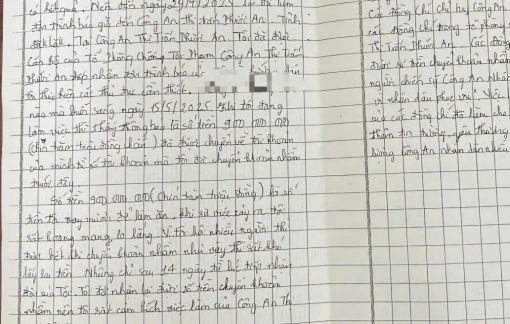 có kết quả. Nên đến ngày 29/4/2025 tôi đã làm
đơn trình báo gửi đến Công An thị trấn Phước An. Tỉnh
Đắk Lắk. Tại Công An Thị Trấn Phước An. Tôi đã được
Cán bộ của Tổ Phòng Chống Tội Phạm Công An Thị Trấn
Phước An tiếp nhận đơn trình báo các
tôi thực hiện các thủ tục cần thiết.
nào mà buổi sáng ngày 15/5/2025 khi tôi đang
làm việc thì thấy thông báo là số tiền 900.000.000
(Chín trăm triệu đồng chẵn) đã được chuyển về tài khoản
của mình từ số tài khoản mà tôi đã chuyển khoản nhầm
trước đây.
Số tiền 900.000.000 (Chín trăm triệu đồng) là số
tiền tôi vay mượn để làm ăn, khi sự việc xảy ra tôi
rất hoang mang lo lắng. Vì tôi hỏi nhiều người thì
được biết khi chuyển khoản nhầm như vậy thì rất khó
lấy lại tiền. Nhưng chỉ sau 14 ngày từ lúc tiếp nhận
đơn của Tôi. Tôi đã nhận lại được số tiền chuyển khoản
nhầm nên tôi rất cảm kích việc làm của Công An Thị
Các đồng chí chỉ huy Công An
các đồng chí trong tổ phòng
Thị Trấn Phước An. Các đồng
được số tiền chuyển khoản nhầm
người chiến sỹ Công An Nhân
vì nhân dân phục vụ". Việc
của các đồng chí đã làm cho
thêm tin tưởng, yêu thương
lượng Công An nhân dân nhiều